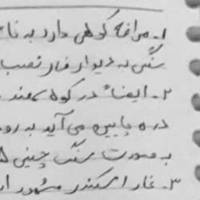 ۱- مرافه کوهی دارد به نا
سنگی به دیوار غار نصب
۲- ایضاً در کوه سهند
دره پایین می آید به رو
به صورت سنگ چینی
۳- غار اسکندر مشهور ا